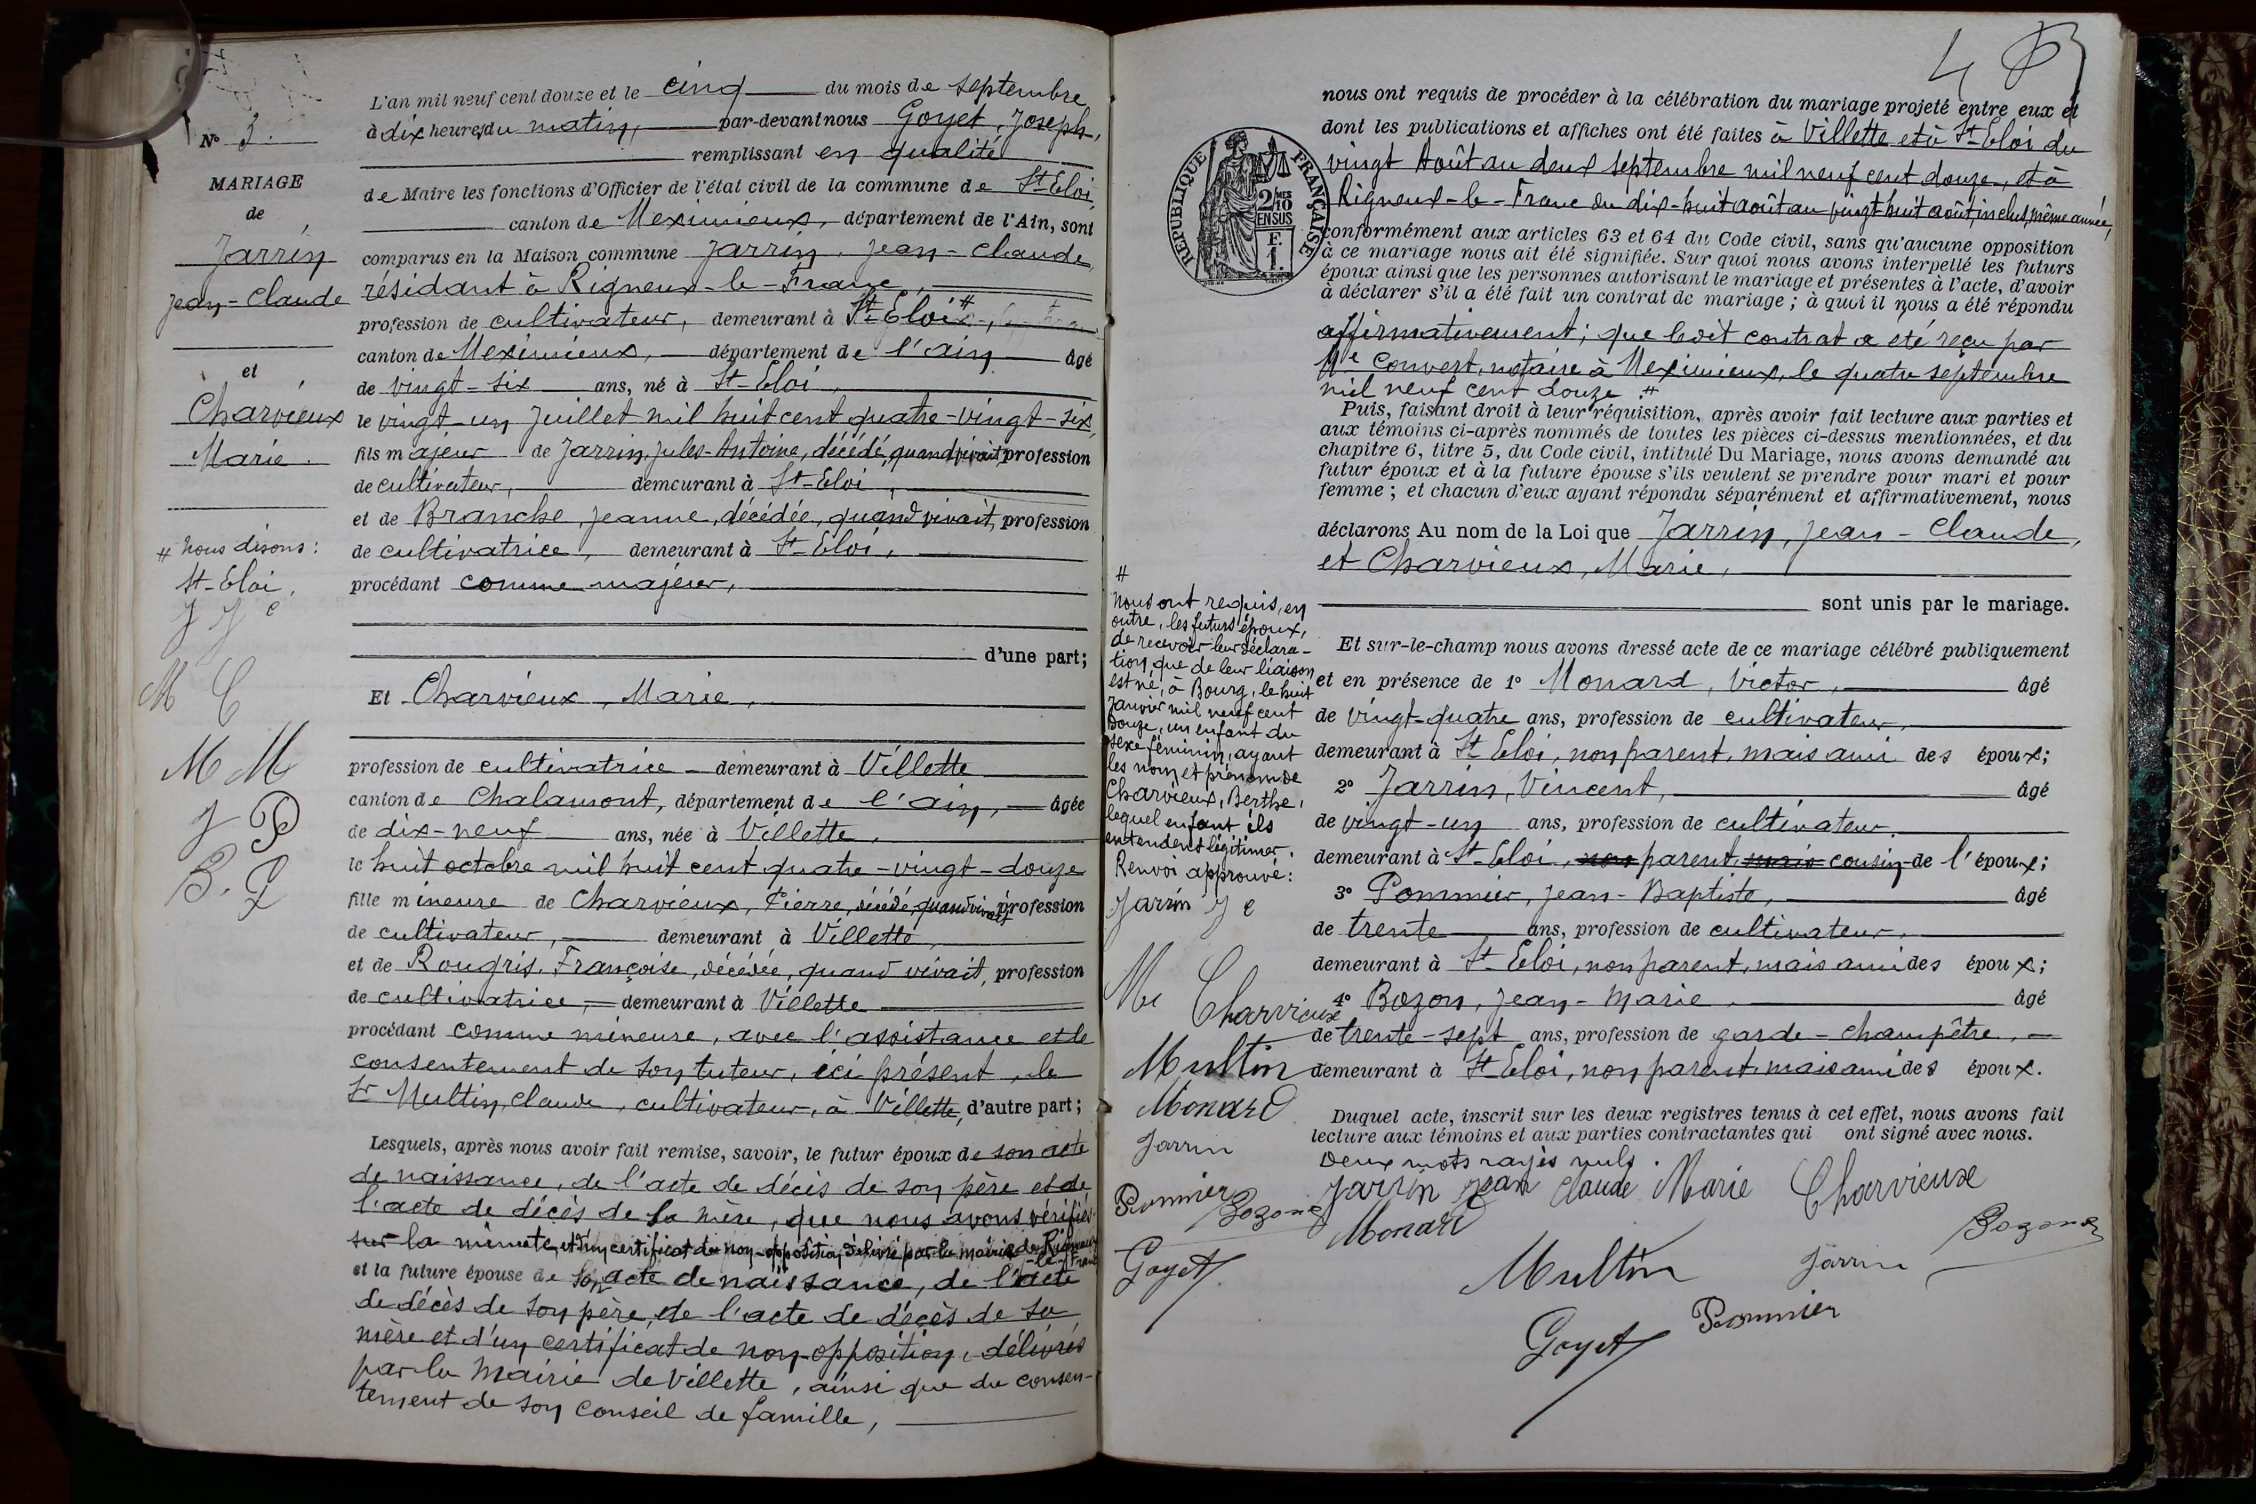 L'an mil neuf cent douze et le cinq du mois de septembre
à dix heures du matin, par-devant nous Goyet, Joseph,
remplissant en qualité
de Maire les fonctions d'Officier de l'état civil de la commune de St-Eloi,
canton de Meximieux, département de l'Ain, sont
comparus en la Maison commune Jarrin, Jean-Claude,
résidant à Rigneux-le-Franc,
profession de cultivateur, demeurant à St-Eloi #
canton de Meximieux, département de l'ain âgé
de vingt-six ans, né à St-Eloi,
le vingt-un Juillet mil huit cent quatre-vingt-six,
fils majeur de Jarrin, Jules-Antoine, décédé, quand vivait, profession
de cultivateur, demeurant à St-Eloi,
et de Branche, Jeanne, décédée, quand vivait, profession
de cultivatrice, demeurant à St-Eloi,
procédant comme majeur,
d'une part;
Et Charvieux, Marie,
profession de cultivatrice demeurant à Villette
canton de Chalamont, département de l'ain, âgée
de dix-neuf ans, née à Villette,
le huit octobre mil huit cent quatre-vingt-douze
fille mineure de Charvieux, Pierre, décédé, quand vivait, profession
de cultivateur, demeurant à Villette,
et de Rougris, Françoise, décédée, quand vivait, profession
de cultivatrice, demeurant à Villette
procédant comme mineure, avec l'assistance et le
consentement de son tuteur, ici présent, le
Sr Multin, Claude, cultivateur, à Villette, d'autre part;
Lesquels, après nous avoir fait remise, savoir, le futur époux de son acte
de naissance, de l'acte de décès de son père et de
l'acte de décès de sa mère, que nous avons vérifiés
sur la minute, et d'un certificat de non-opposition délivré par la mairie de Rigneux
-le-Franc
et la future épouse de son acte de naissance, de l'acte
de décès de son père, de l'acte de décès de sa
mère et d'un certificat de non-opposition, délivrés
par la Mairie de Villette, ainsi que du consen-
tement de son conseil de famille,
No 3.
MARIAGE
de
Jarrin
Jean-Claude
et
Charvieux
Marie.
# Nous disons:
St-Eloi.
J J C
M C
M M
J P
B. J
4
nous ont requis de procéder à la célébration du mariage projeté entre eux et
dont les publications et affiches ont été faites à Villette et à St-Eloi du
vingt Août au deux septembre mil neuf cent douze, et à
Rigneux-le-Franc du dix-huit août au vingt-huit août, inclus, même année,
conformément aux articles 63 et 64 du Code civil, sans qu'aucune opposition
à ce mariage nous ait été signifiée. Sur quoi nous avons interpellé les futurs
époux ainsi que les personnes autorisant le mariage et présentes à l'acte, d'avoir
à déclarer s'il a été fait un contrat de mariage; à quoi il nous a été répondu
affirmativement; que ledit contrat a été reçu par
Me Convert, notaire à Meximieux, le quatre septembre
mil neuf cent douze. #
Puis, faisant droit à leur réquisition, après avoir fait lecture aux parties et
aux témoins ci-après nommés de toutes les pièces ci-dessus mentionnées, et du
chapitre 6, titre 5, du Code civil, intitulé Du Mariage, nous avons demandé au
futur époux et à la future épouse s'ils veulent se prendre pour mari et pour
femme; et chacun d'eux ayant répondu séparément et affirmativement, nous
déclarons Au nom de la Loi que Jarrin, Jean-Claude,
et Charvieux, Marie,
sont unis par le mariage.
Et sur-le-champ nous avons dressé acte de ce mariage célébré publiquement
et en présence de 1° Monard, Victor, âgé
de vingt-quatre ans, profession de cultivateur,
demeurant à St-Eloi, non parent, mais ami des époux;
2° Jarrin, Vincent, âgé
de vingt-un ans, profession de cultivateur,
demeurant à St-Eloi, non parent, mais cousin de l'époux;
3° Pommier, Jean-Baptiste, âgé
de trente ans, profession de cultivateur,
demeurant à St-Eloi, non parent, mais ami des époux;
4° Bozon, Jean-Marie, âgé
de trente-sept ans, profession de garde-champêtre,
demeurant à St-Eloi, non parent, mais ami des époux.
Duquel acte, inscrit sur les deux registres tenus à cet effet, nous avons fait
lecture aux témoins et aux parties contractantes qui ont signé avec nous.
Deux mots rayés nuls.
Jarrin Jean Claude Marie Charvieux
Monard Bozon
Multin Jarrin
Goyet Pommier
REPUBLIQUE FRANÇAISE
2/10 MES
EN SUS
F.
1.
#
Nous ont requis, en
outre, les futurs époux,
de recevoir leur déclara-
tion que de leur liaison
est né, à Bourg, le huit
Janvier mil neuf cent
douze, un enfant du
sexe féminin, ayant
les nom et prénom de
Charvieux, Berthe,
lequel enfant ils
entendent légitimer.
Renvoi approuvé:
Jarrin J C
Me Charvieux
Multin
Monard
Jarrin
Pommier
Bozon
Goyet